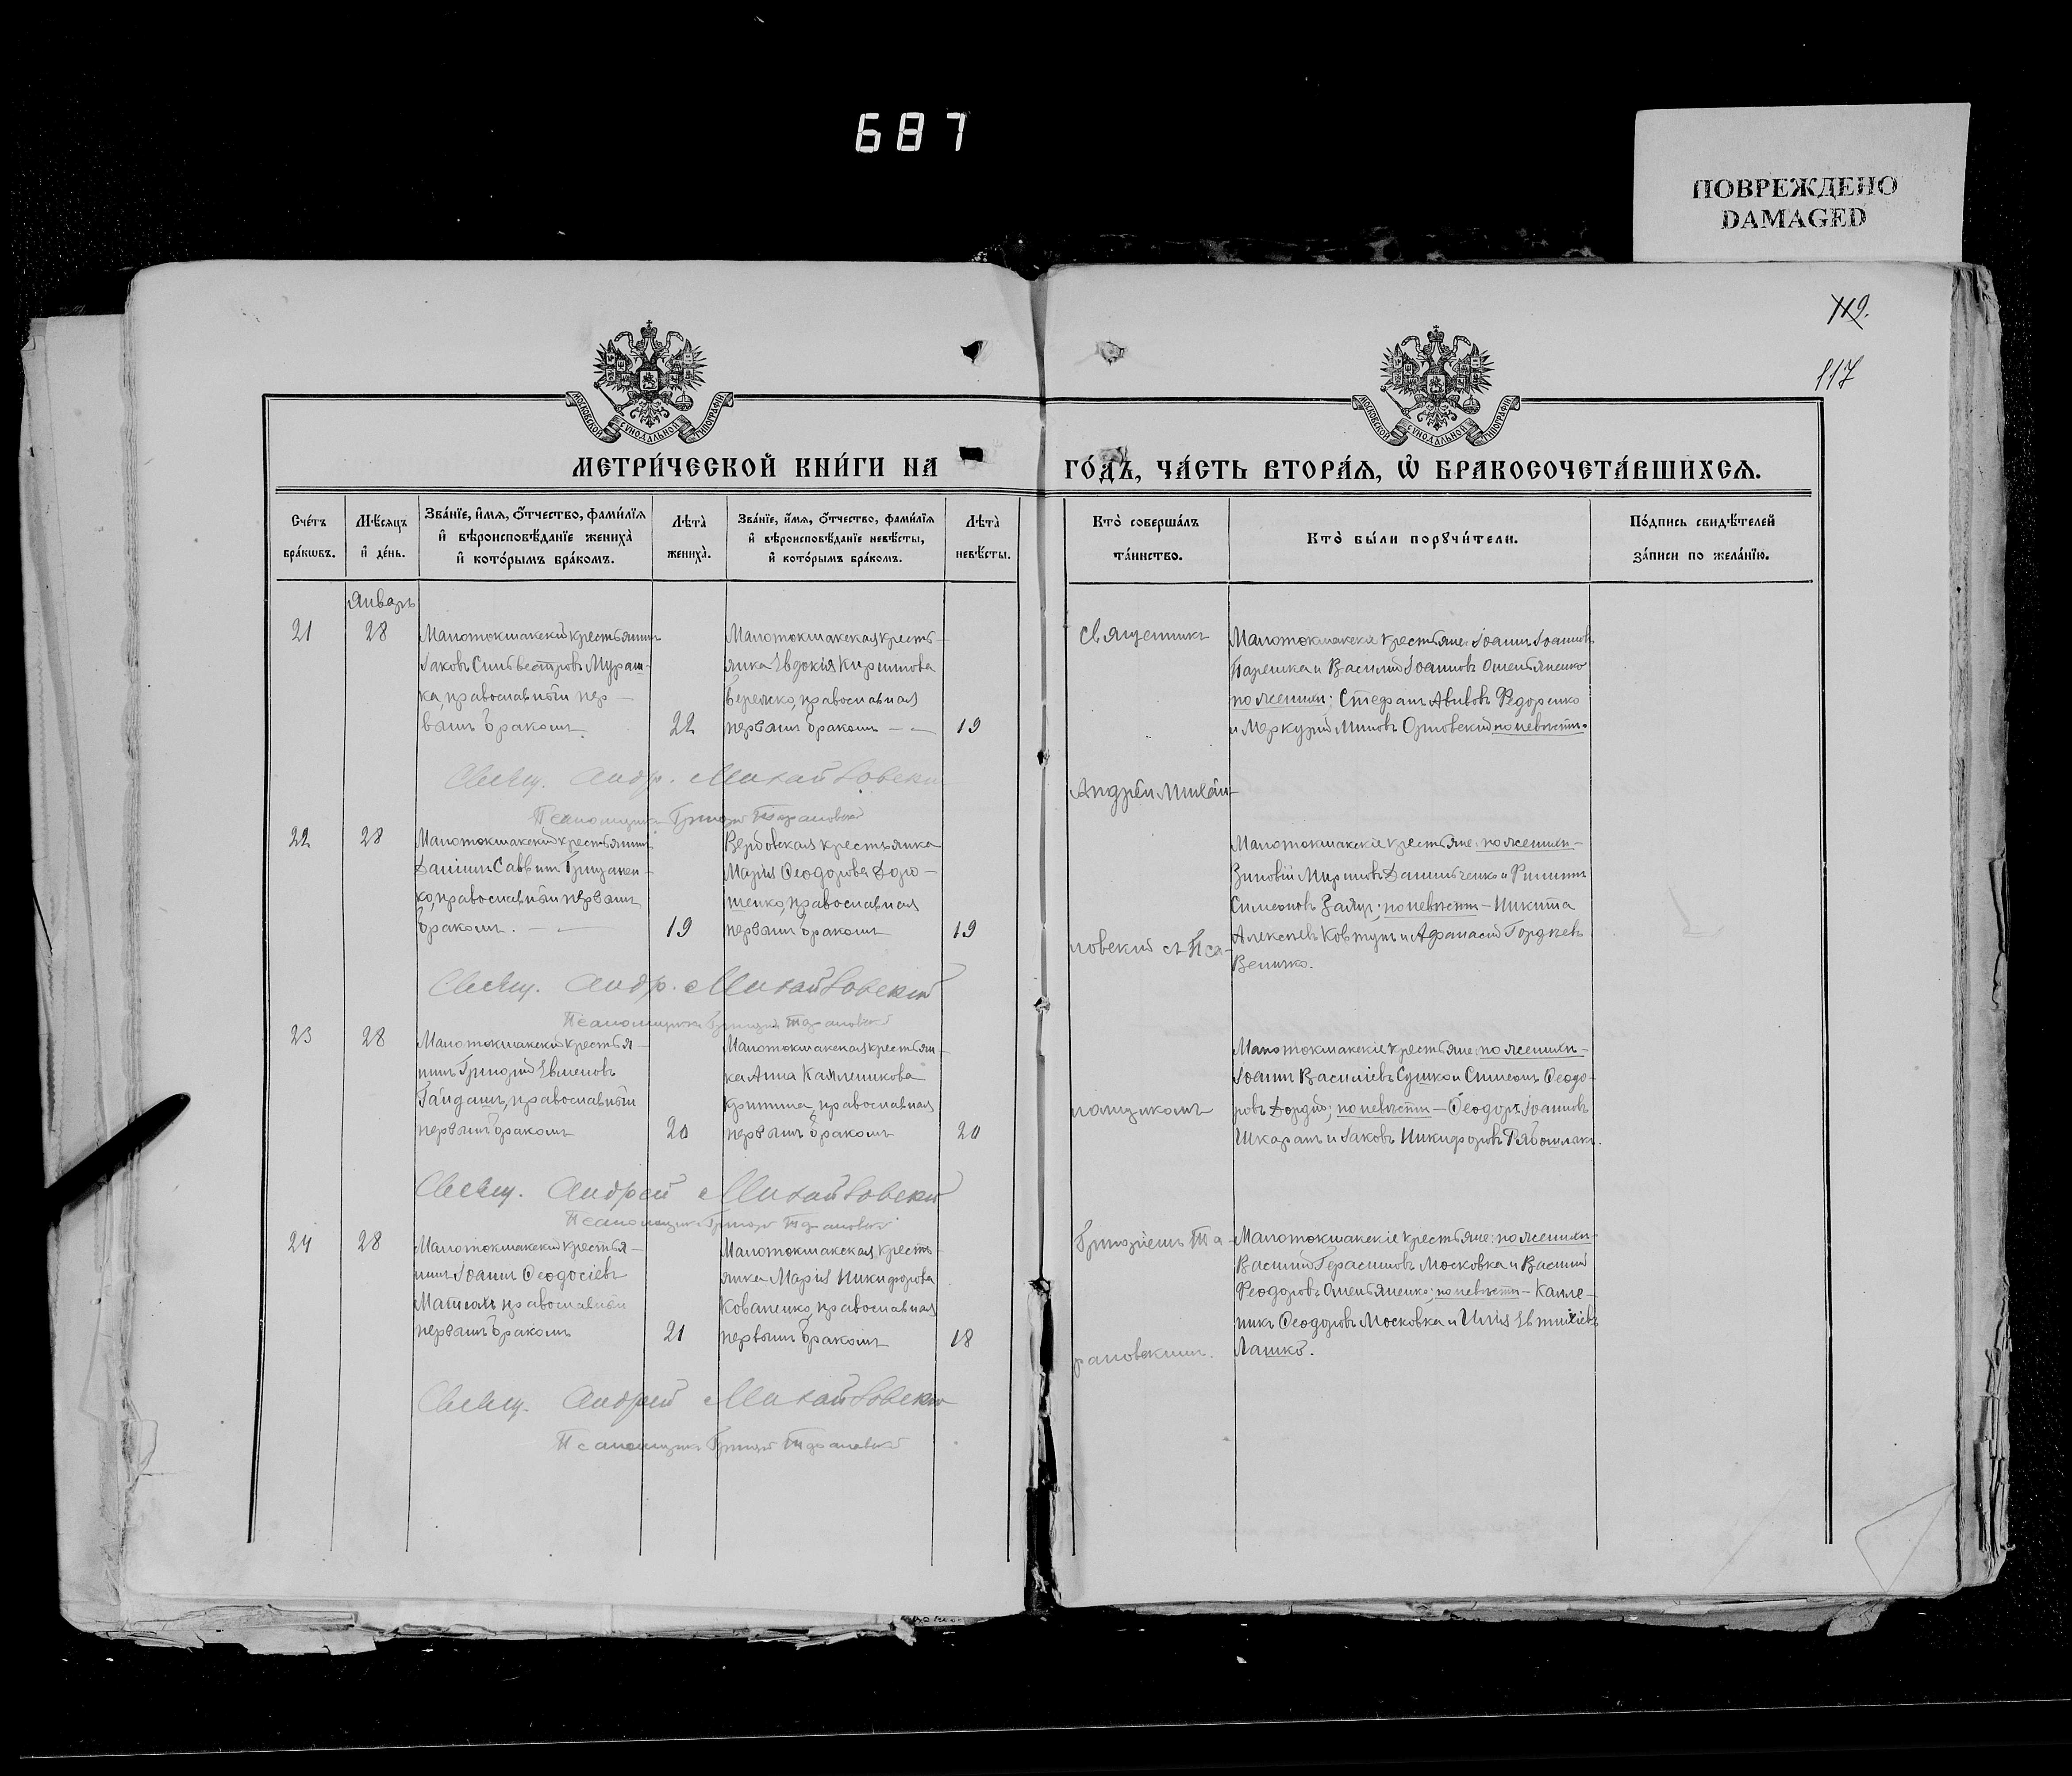 687
ПОВРЕЖДЕНО
DAMAGED
119.
117
МОСКОВСКОЙ СУНОДАЛЬНОЙ ТИПОГРАФІИ
МОСКОВСКОЙ СУНОДАЛЬНОЙ ТИПОГРАФІИ
МЕТРИ́ЧЕСКОЙ КНИ́ГИ НА ГО́ДЪ, ЧА́СТЬ ВТОРА́Я, Ѡ БРАКОСОЧЕТА́ВШИХСЯ.
Сче́тъ бра́кѡвъ.
Мѣ́сяцъ и де́нь.
Зва́нїе, и́мя, ѻ́тчество, фами́лїя и вѣроисповѣ́данїе жениха̀ и кото́рымъ бра́комъ.
Лѣта̀ жениха̀.
Зва́нїе, и́мя, ѻ́тчество, фами́лїя и вѣроисповѣ́данїе невѣ́сты, и кото́рымъ бра́комъ.
Лѣта̀ невѣ́сты.
Кто̀ соверша́лъ та́инство.
Кто̀ бы́ли порꙋчи́тели.
По́дпись свидѣ́телей за́писи по жела́нїю.
Январь
21
28
Малотокмакскій крестьянинъ
Іаковъ Сильвестровъ Мураш-
ка, православный пер-
вымъ бракомъ
22
Малотокмакская кресть-
янка Евдокія Кириллова
Бережко, православная
первымъ бракомъ
19
Священникъ
Малотокмакскіе крестьяне: Іоаннъ Іоанновъ
и Василій Іоанновъ Омельяненко
по женихѣ; Стефанъ Авивовъ Федоренко
и Меркурій Миновъ Орловскій по невѣстѣ.
Свящ. Андр. Михайловскій
Псаломщикъ Григорій Тарановскій
Андрей Михай-
22
28
Малотокмакскій крестьянинъ
Даніилъ Саввинъ Грицанен-
ко, православный первымъ
бракомъ.
19
Вербовская крестьянка
Марія Ѳеодорова Доро-
шенко, православная
первымъ бракомъ
19
ловскій съ Пса-
Малотокмакскіе крестьяне: по женихѣ-
Зиновій Мироновъ Данильченко и Филиппъ
Симеоновъ Заяцъ; по невѣстѣ - Никита
Алексѣевъ Ковтунъ и Афанасій Гордѣевъ
Величко.
Свящ. Андр. Михайловскій
Псаломщикъ Григорій Тарановскій
23
28
Малотокмакскій крестья-
нинъ Григорій Евменовъ
Гайдашъ, православный
первымъ бракомъ
20
Малотокмакская крестьян-
ка Анна Каллиникова
православная
первымъ бракомъ
20
ломщикомъ
Малотокмакскіе крестьяне: по женихѣ-
Іоаннъ Василіевъ Сушко и Симеонъ Ѳеодо-
ровъ по невѣстѣ - Ѳеодоръ Іоанновъ
Шкаранъ и Іаковъ Никифоровъ Рябошапка.
Свящ. Андрей Михайловскій
Псаломщикъ Григорій Тарановскій
24
28
Малотокмакскій крестья-
нинъ Іоаннъ Ѳеодосіевъ
православный
первымъ бракомъ
21
Малотокмакская кресть-
янка Марія Никифорова
Коваленко, православная
первымъ бракомъ
18
Григоріемъ Та-
рановскимъ.
Малотокмакскіе крестьяне: по женихѣ-
Василій Герасимовъ Московка и Василій
Феодоровъ Омельяненко; по невѣстѣ - Калле-
никъ Ѳеодоровъ Московка и Илія Евтихіевъ
Лашко.
Свящ. Андрей Михайловскій
Псаломщикъ Григорій Тарановскій